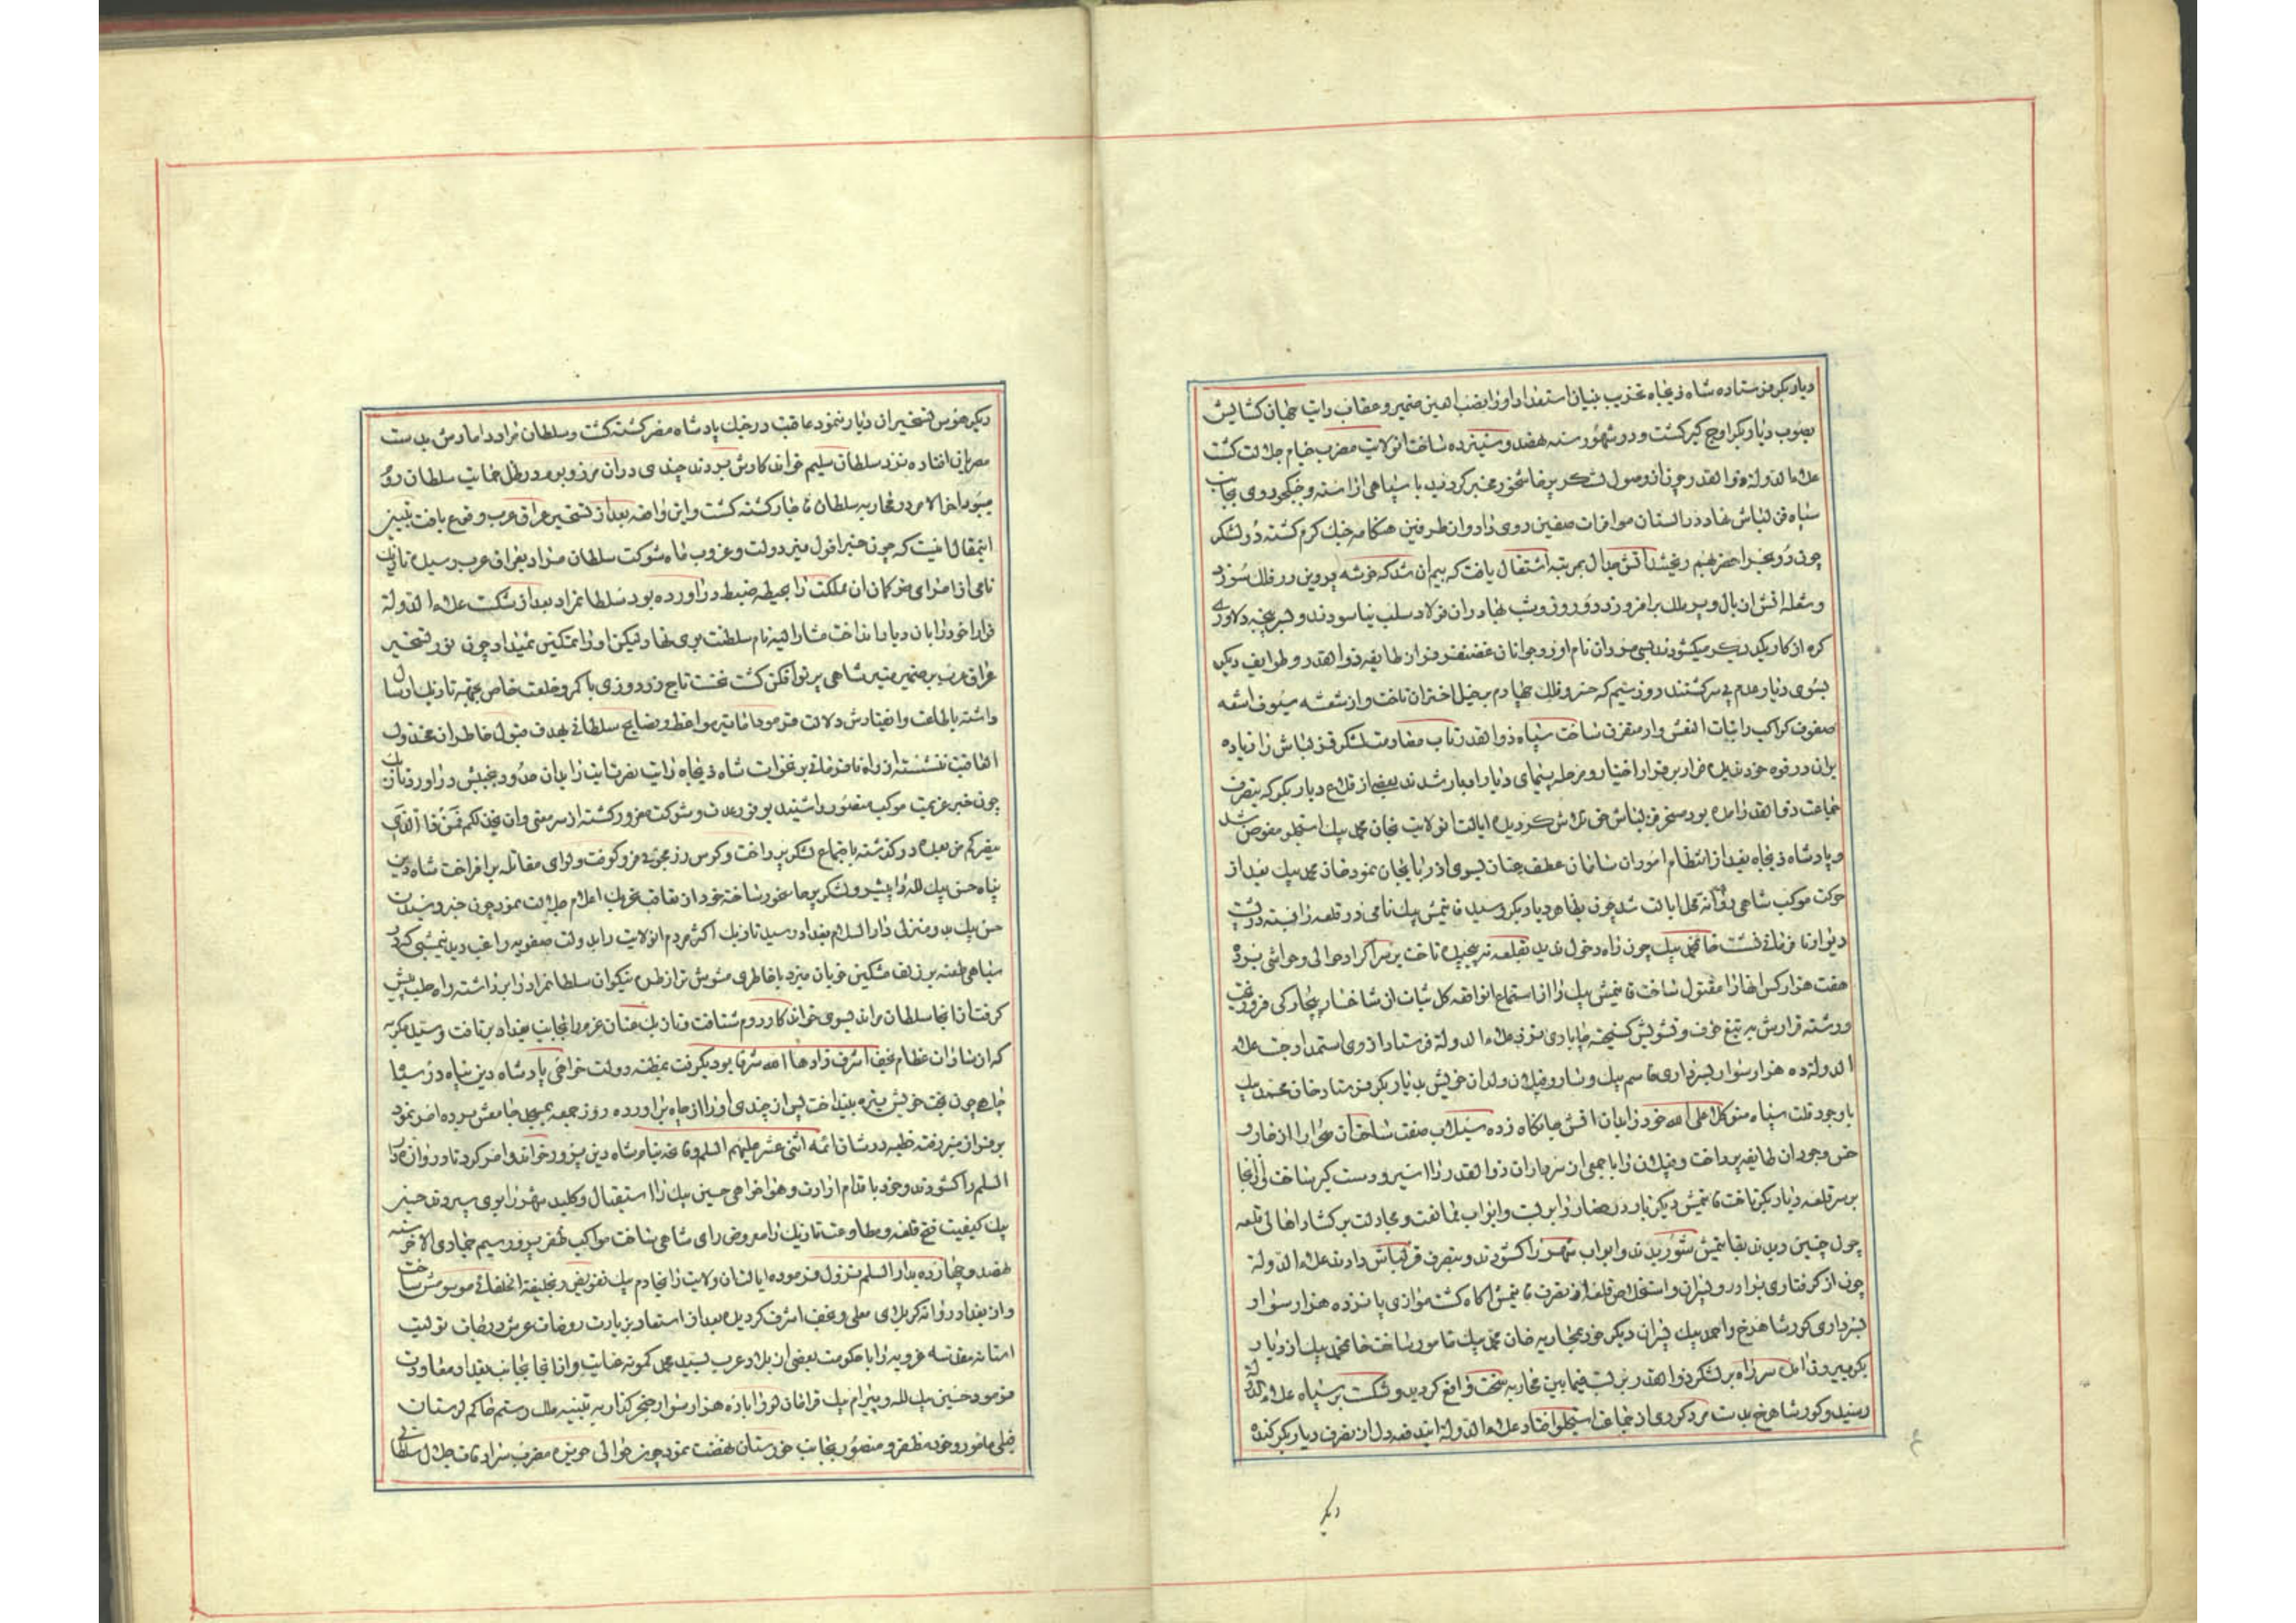 دیاربکر فرستاده شاه ذیجاه تخریب بنیان استعداد او را نصب العین ضمیر و عقاب رایت جهان کشایش
بصوب دیاربکر اوج کیر کشت و در شهور سنه نهصد و سیزده ساخت انولایت مضرب خیام جلالت کشت
علاء الدوله ذوالقدر چون از وصول لشکر پرخاشخور مخبر کردید با سپاهی اراسته و جنکجو روی بجانب
سپاه قزلباش نهاد در البستان موافات صفین روی داد و از طرفین هنکامه جنک کرم کشته دو لشکر
چون دو بحر اخضر بهم ریختند اتش جدال بمرتبه اشتعال یافت که بیم ان شد که خوشه پروین در فلک سوزد
و شعله اتش ان بال و پر ملک برافروزد دو روز و شب نهادران فولاد سلب نیاسودند و بسر پنجه دلاوری
کره از کار یکدیکر میکشودند بسی مردان نام اور و جوانان غضنفر فر از طایفه ذوالقدر و طوایف دیکر
بسوی دیار عدم پی سر کشتند روز سیم که خسرو فلک چهارم بر خیل اختران تاخت و از شعشه سیوف اشعه
صفوف کواکب را بنات النعش وار متفرق ساخت سپاه ذوالقدر تاب مقاومت لشکر قزلباش را زیاده
بران در قوه خود ندیده فرار بر قرار اختیار و مرحله پیمای دیار ادبار شدند بعضی از قلاع دیاربکر که بتصرف
جماعت ذوالقدر درآمده بود مسخر قزلباش خون تلاش کردیده ایالت انولایت بخان محمد بیک استجلو مفوض شد
و پادشاه ذیجاه بعد از انتظام امور ان سامان عطف عنان بسوی اذربایجان نمود خان محمد بیک بعد از
حرکت موکب شاهی روانه محل ایالت شد چون بظاهر دیاربکر رسید قایتمش بیک نامی در قلعه را بسته در پشت
دیوار نافرمانی نشست خانمحمد بیک چون راه دخول ندید بقلعه نپیچیده تاخت بر سر اکراد حوالی و حواشی برده
هفت هزار کس انها را مقتول ساخت قایتمش بیک را از استماع انواقعه کل ثبات از شاخسار پنجاره کی فرو ریخت
و رشته قرارش به تیغ خوف و تشویش کسیخته چاپاری نزد علاء الدوله فرستاد از وی استمداد جست علاء
الدوله ده هزار سوار بسرداری قاسم بیک و سارو قپلان ولدان خویش بدیاربکر فرستاد خان محمد بیک
با وجود قلت سپاه متوکلا علی الله خود را بمیان اتش جانکاه زده سیلاب صفت ساحت ان صحرا را از خار و
خس وجود ان طایفه پرداخت و قپلان را با جمعی از سرداران ذوالقدر را اسیر و دست کیر ساخت از انجا
بر سر قلعه دیاربکر تاخت قایتمش دیکر باره در حصار را بر بست و ابواب ممانعت و مجادلت بر کشاد اهالی قلعه
چون چنین دیدند بقایتمش شوریدند و ابواب شهر را کشودند و بتصرف قزلباش دادند علاء الدوله
چون از کرفتاری برادر و پسران و استخلاص قلعه از تصرف قایتمش اکاه کشت موازی پانزده هزار سوار
بسرداری کورشاهرخ و احمد بیک پسران دیکر خود بمحاربه خان محمد بیک مامور ساخت خانمحمد بیک از دیار
بکر بیرون امده سر راه بر لشکر ذوالقدر بست فیمابین محاربه سخت واقع کردید و شکست بر سپاه علاء الدوله
رسید و کورشاهرخ بدست مرد کردی از جماعت استجلو افتاد علاء الدوله ایندفعه دل از تصرف دیاربکر کنده
دیکر
دیکر هوس تسخیر ان دیار ننمود عاقبت در جنک پادشاه مصر کشته کشت و سلطان مراد دامادش بدست
مصریان افتاده نزد سلطان سلیم خواندکارش بردند چندی در ان مرز و بوم در ظل حمایت سلطان روم
میبود اخر الامر در محاربه سلطان قاجار کشته کشت و این واقعه بعد از تسخیر عراق عرب وقوع یافت تبیین
اینمقال انیست که چون خبر افول نیر دولت و غروب ماه شوکت سلطان مراد بعراق عرب رسید ناریک
نامی از امرای ترکمان ان مملکت را بحیطه ضبط دراورده بود سلطانمراد بعد از شکست علاء الدوله
فرارا خود را بان دیار انداخت مشار الیه نام سلطنت بوی نهاد لیکن او را تمکین نمیداد چون نور تسخیر
عراق عرب بر ضمیر منیر شاهی پرتو افکن کشت نخست تاج زردوزی با کمر و خلعت خاص بجهة ناریک ارسال
داشته باطاعت و انقیادش دلالت فرمود اما تیر مواعظ و نصایح سلطانی بهدف قبول خاطر ان مخذول
العاقبت ننشسته از راه نافرمانی برنخواست شاه ذیجاه رایت نصرت ایت را بان حدود بجنبش دراورد ناریک
چون خبر عزیمت موکب منصور را شنید بوفور عدت و شوکت مغرور کشته از سر معنی وان یخذلکم فمن ذا الذی
ینصرکم من بعده در کذشته باجتماع لشکر پرداخت و کوس رزمجوئی فرو کوفت و لوای مقاتله برافراخت شاه دین
پناه حسن بیک لله را پیشرو لشکر پرخاشخور ساخته خود از عقب تحریک اعلام جلالت نمود چون خبر رسیدن
حسن بیک بدو منزلی دار السلام بغداد رسید ناریک اکثر مردم انولایت را بدولت صفویه راغب دید نیمشبی که در
سیاهی طعنه بر زلف مشکین خوبان میزد با خاطری مشوش تر از طره نیکوان سلطانمراد را برداشته راه حلب پیش
کرفت از انجا سلطان مراد بسوی خواندکار روم شتافت و ناریک عنان عزم را بجانب بغداد برتافت و سید محمد کمونه
که از سادات عظام نجف اشرف زادها الله شرفا بود بکرفت بمظنه دولت خواهی پادشاه دین پناه در سیه
چاهی چون بخت خویش تیره بینداخت پس از چندی او را از چاه براورده روز جمعه بمسجد جامعش برده امر نمود
بر فراز منبر رفته خطبه در شان ائمه اثنی عشر علیهم السلام و فاتحه بنام شاه دین پرور خواند و امر کرد تا دروازه دار
السلام را کشودند و خود با قدام ارادت و هوا خواهی حسین بیک را استقبال و کلید شهر را بوی سپردند حسین
بیک کیفیت فتح قلعه و مطاوعت ناریک را معروض رای شاهی ساخت مواکب ظفر پرور سیم جمادی الاخر سنه
نهصد و چهارده بدار السلم نزول فرموده ایالت ان ولایت را بخادم بیک تفویض و بخلیفة الخلفائی موسوم ساخت
و از بغداد روانه کربلای معلی و نجف اشرف کردیده بعد از استسعاد بزیارت روضات عرش درجات تولیت
استانه مقدسه غرویه را با حکومت بعضی از بلاد عرب بسید محمد کمونه عنایت و از انجا بجانب بغداد معاودت
فرمود حسین بیک لله و بیرام بیک قرامانلو را با ده هزار سوار خنجر کذار به تنبیه ملک رستم حاکم لرستان
فیلی مامور و خود مظفر و منصور بجانب خوزستان نهضت نمود چون حوالی حویزه مضرب سرادقات جلال سلطانی